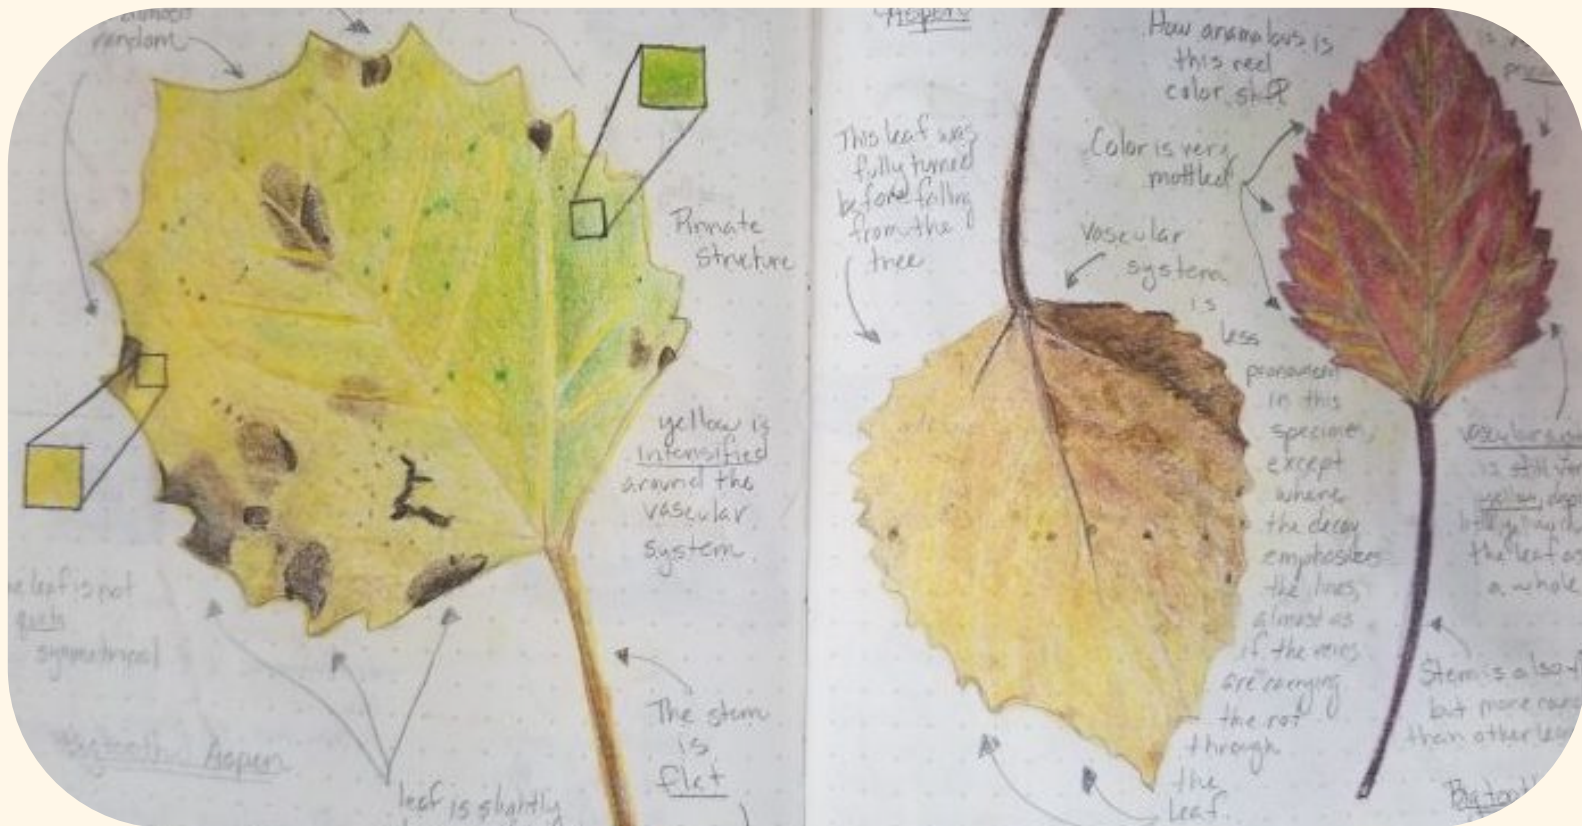 almost
random
Pinnate
Structure
yellow is
intensified
around the
vascular
system.
leaf is not
quite
symmetrical
Bigtooth Aspen
The stem
is
flat
leaf is slightly
Aspen
This leaf was
fully turned
before falling
from the
tree
How anamalous is
this red
color, still
Color is very
mottled
vascular
system
is
less
pronounced
in this
specimen,
except
where
the decay
emphasizes
the lines,
almost as
if the veins
are carrying
the rot
through
the
leaf.
is
vascular
is still
yellow,
the leaf as
a whole
Stem is also
but more
than other